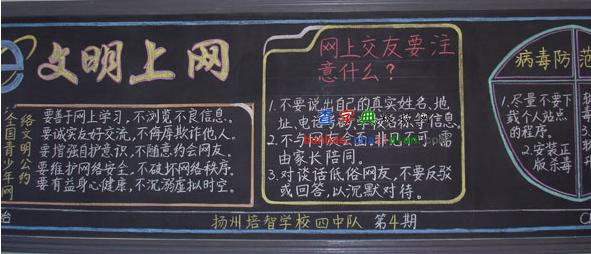 文明上网
全国青少年网
络文明公约
要善于网上学习,不浏览不良信息。
要诚实友好交流,不侮辱欺诈他人。
要增强自护意识,不随意约会网友。
要维护网络安全,不破坏网络秩序。
要有益身心健康,不沉溺虚拟时空。
网上交友要注
意什么?
1.不要说出自己的真实姓名、地
址、电话、学校名称等信息。
2.不与网友会面。非见不可,需
由家长陪同。
3.对谈话低俗网友,不要反驳
或回答,以沉默对待。
病毒防范
1.尽量不要下
载个人站点
的程序。
2.安装正
版杀毒
台
扬州培智学校四中队 第4期
查字典